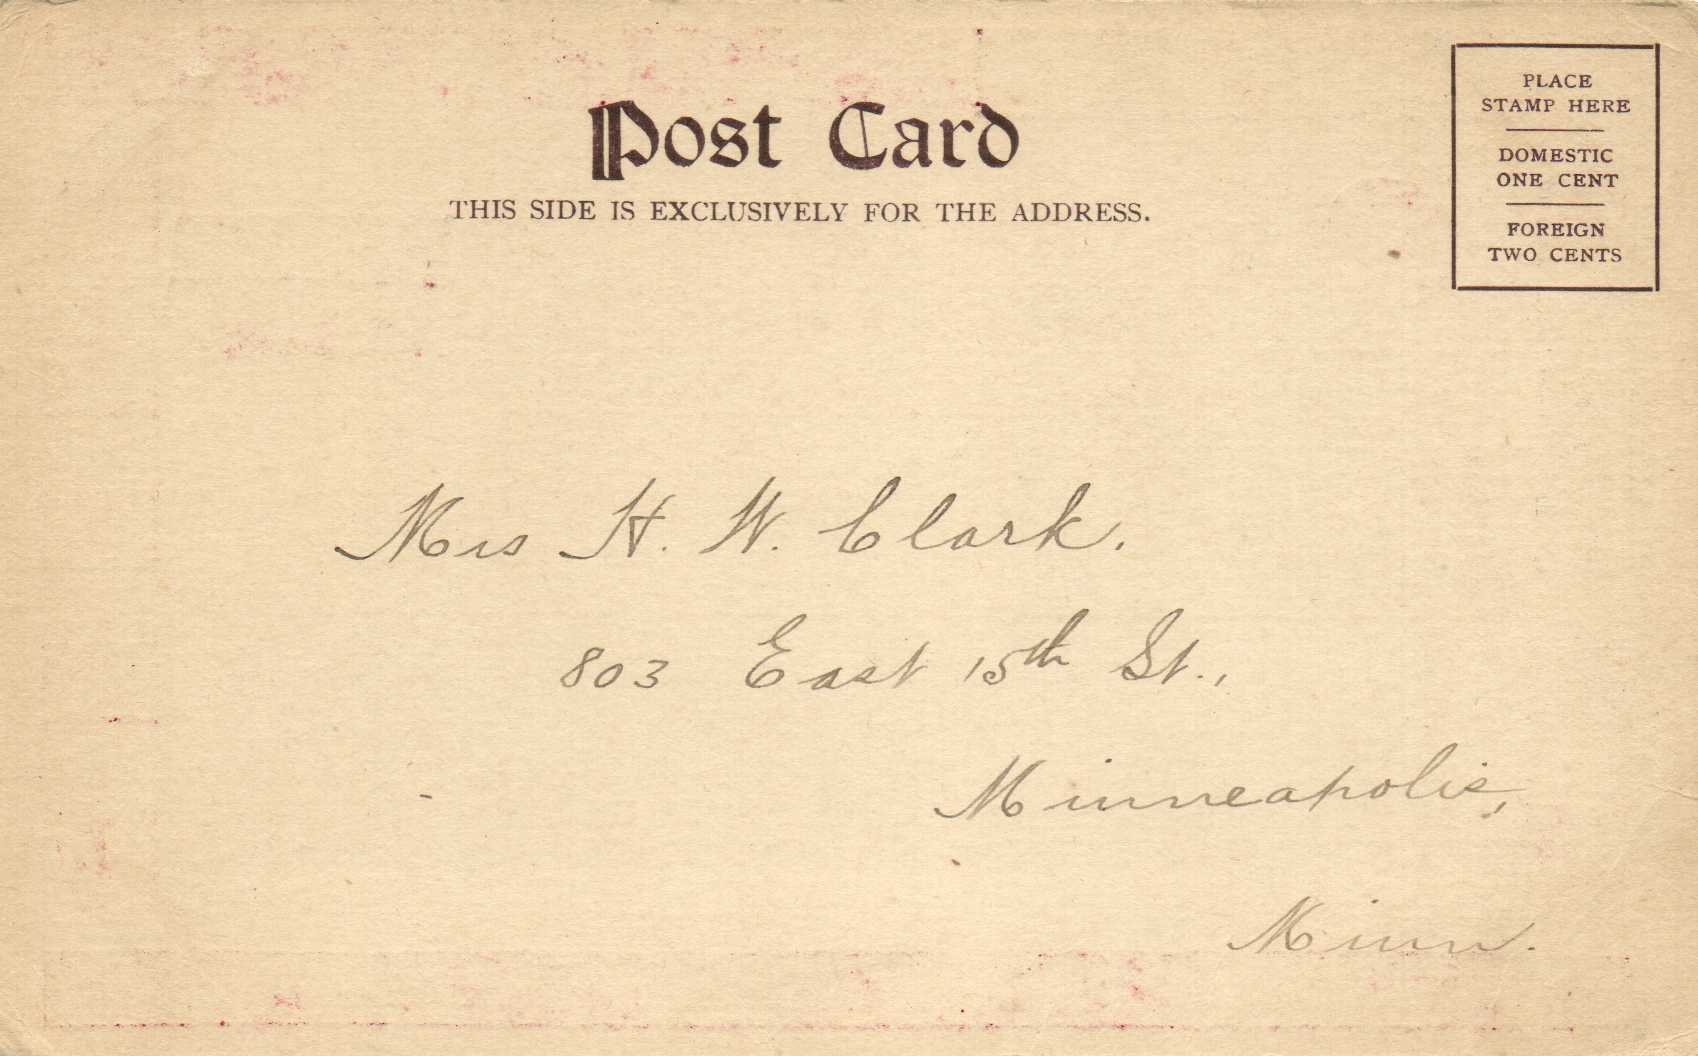 Post Card
THIS SIDE IS EXCLUSIVELY FOR THE ADDRESS.
PLACE
STAMP HERE
DOMESTIC
ONE CENT
FOREIGN
TWO CENTS
Mrs H. W. Clark.
803 East 15th St.,
Minneapolis,
Minn.